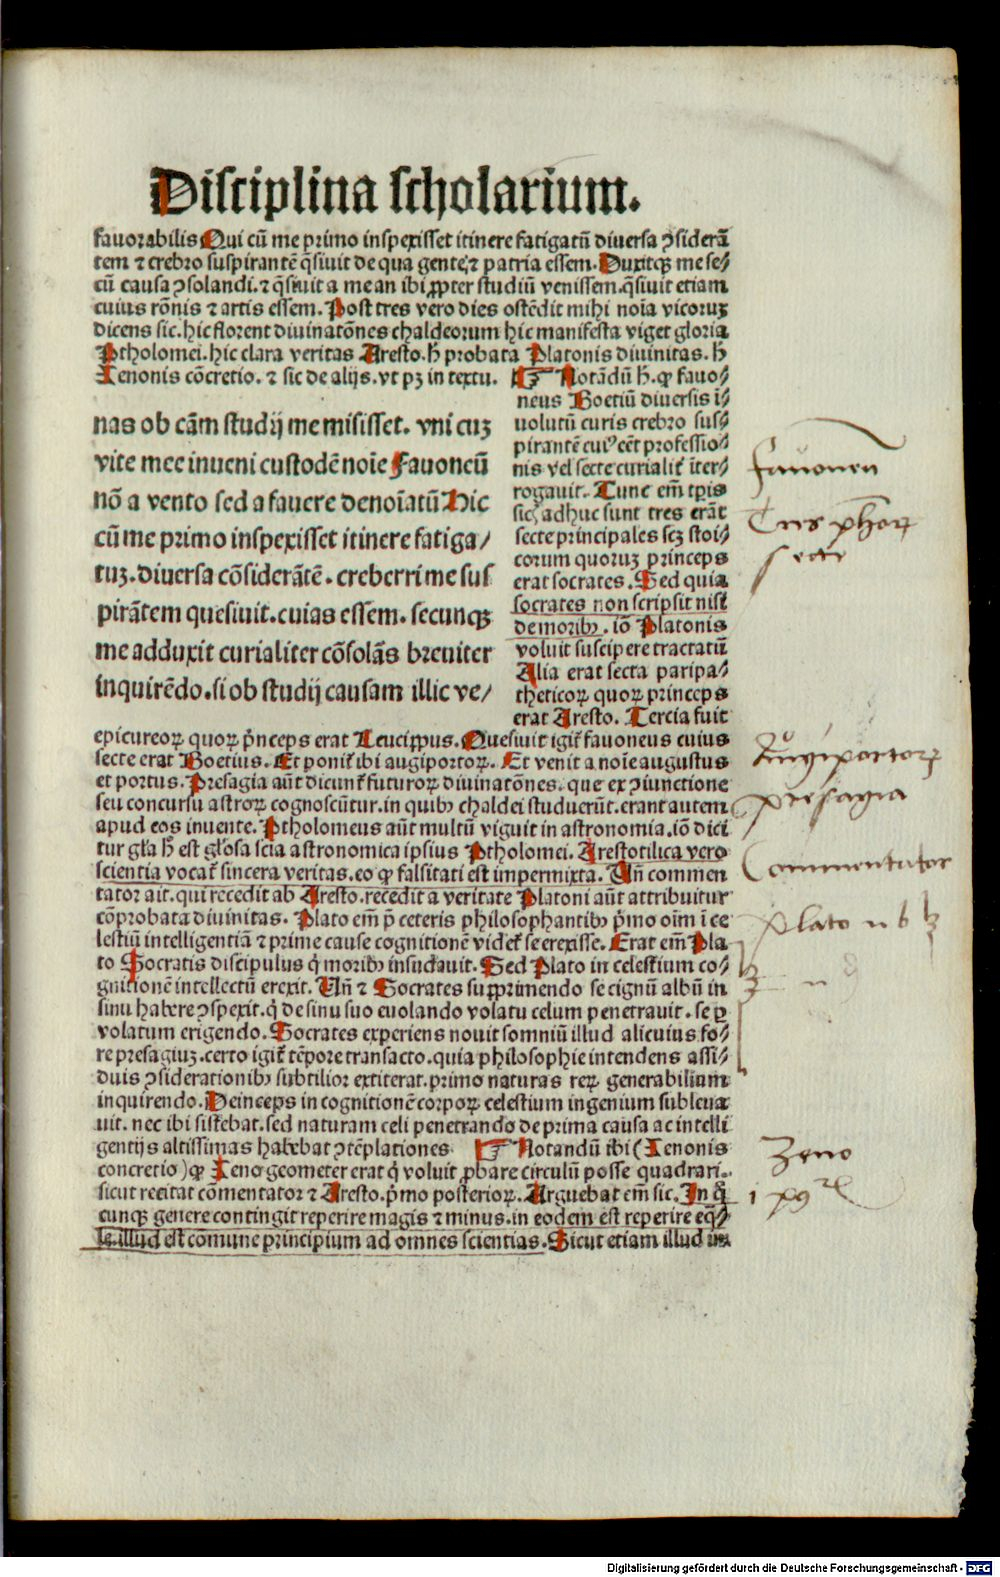 Disciplina scholarium.
fauorabilis Qui cū me primo inspexisset itinere fatigatū diuersa ꝯsiderā
tem ⁊ crebro suspirantē q̄siuit de qua gente,⁊ patria essem. Duxitqꝫ me se⸗
cū causa ꝯsolandi. ⁊ q̄siuit a me an ibi ꝓpter studiū venissem. q̄siuit etiam
cuius rōnis ⁊ artis essem. Post tres vero dies ostēdit mihi noīa vicoruꝫ
dicens sic. hic florent diuinatōnes chaldeorum hic manifesta viget gloria
Ptholomei. hic clara veritas Aresto. h̄ probata Platonis diuinitas. h̄
Xenonis cōcretio. ⁊ sic de alijs. vt pꝫ in textu. ☞ Notādū h̄. ꝙ fauo⸗
neus Boetiū diuersis ī⸗
uolutū curis crebro sus⸗
pirantē cuiꝰ cēt professio⸗
nis vel secte curialit̄ īter⸗
rogauit. Tunc em̄ tꝑis
sic adhuc sunt tres erāt
secte principales scꝫ stoi⸗
corum quoruꝫ princeps
erat socrates. Sed quia
socrates non scripsit nisi
de moribꝫ. iō Platonis
voluit suscipere tractatū
Alia erat secta paripa⸗
theticoꝝ quoꝝ princeps
erat Aresto. Tercia fuit
nas ob cām studij me misisset. vni cuꝫ
vite mee inueni custodē noīe Fauoneū
nō a vento sed a fauere denoīatū Hic
cū me primo inspexisset itinere fatiga/
tuꝫ. diuersa cōsiderātē. creberrime sus
pirātem quesiuit. cuias essem. secunqꝫ
me adduxit curialiter cōsolās breuiter
inquirēdo. si ob studij causam illic ve/
epicureoꝝ quoꝝ p̄nceps erat Leucippus. Quesiuit igit̄ fauoneus cuius
secte erat Boetius. Et ponit̄ ibi augiportoꝝ. Et venit a noīe augustus
et portus. Presagia aūt dicunt̄ futuroꝝ diuinatōnes. que ex ꝯiunctione
seu concursu astroꝝ cognoscūtur. in quibꝫ chaldei studuerūt. erant autem
apud eos inuente. Ptholomeus aūt multū viguit in astronomia. iō dici
tur gl̄a h̄ est gl̄osa scīa astronomica ipsius Ptholomei. Arestotilica vero
scientia vocat̄ sincera veritas. eo ꝙ falsitati est impermixta. Un̄ commen
tator ait. qui recedit ab Aresto. recedit a veritate Platoni aūt attribuitur
cōprobata diuinitas. Plato em̄ p̄ ceteris philosophantibꝫ p̄mo oīm ī ce
lestiū intelligentiā ⁊ prime cause cognitionē videt̄ se erexisse. Erat em̄ Pla
to Socratis discipulus q̄ moribꝫ insudauit. Sed Plato in celestium co⸗
gnitionē intellectū erexit. Un̄ ⁊ Socrates supprimendo se cignū albū in
sinu habere ꝯspexit. q̄ de sinu suo euolando volatu celum penetrauit. se ꝑ
volatum erigendo. Socrates experiens nouit somniū illud alicuius fo⸗
re presagiuꝫ. certo igit̄ tēpore transacto. quia philosophie intendens assi⸗
duis ꝯsiderationibꝫ subtilior extiterat. primo naturas reꝝ generabilium
inquirendo. Deinceps in cognitionē corpoꝝ celestium ingenium subleua
uit. nec ibi sistebat. sed naturam celi penetrando de prima causa ac intelli
gentijs altissimas habebat ꝯtēplationes ☞ Notandū ibi (Xenonis
concretio) ꝙ Xeno geometer erat q̄ voluit ꝓbare circulū posse quadrari.
sicut recitat cōmentator ⁊ Aresto. p̄mo posterioꝝ. Arguebat em̄ sic. In q̄
cunqꝫ genere contingit reperire magis ⁊ minus. in eodem est reperire eq̄⸗
le. illud est cōmune principium ad omnes scientias. Sicut etiam illud
fauonen
Tres
secte
Augiportoꝝ
presagia
Commentator
plato
Zeno